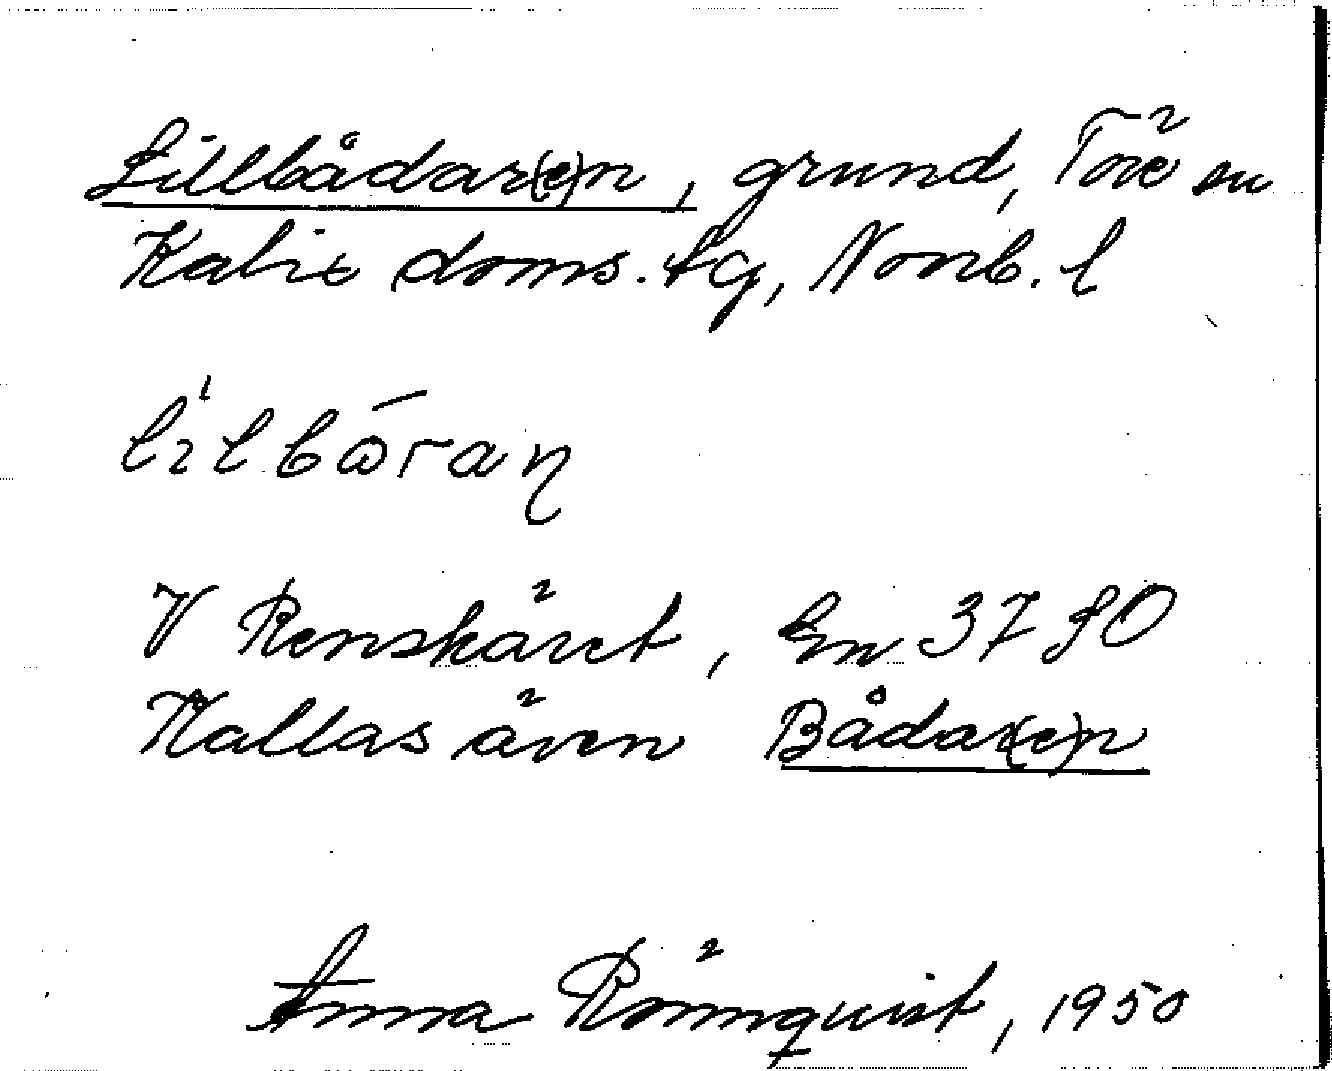 Lillbådar(e)n, grund, Töre sn
Kalix doms. tg, Norrb. l
lı'lbɷ̄raŋ
V Renskäret, En 3780
Kallas även Bådar(e)n
Anna Rönnquist, 1950